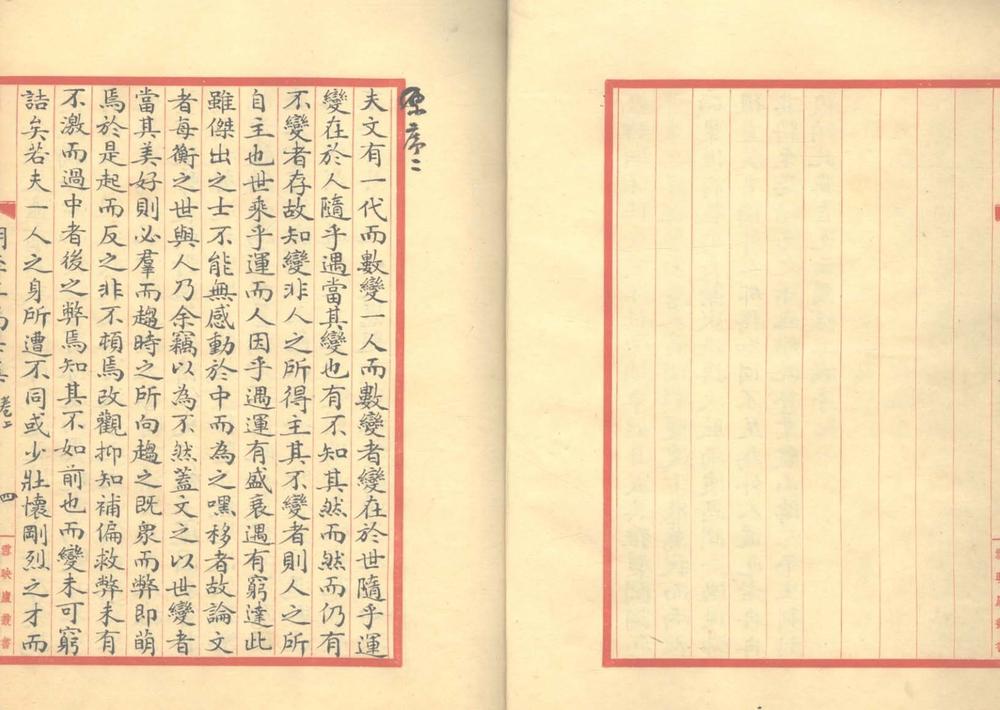 原序二
夫文有一代而數變一人而數變者變在於世隨乎運
變在於人隨乎遇當其變也有不知其然而然而仍有
不變者存故知變非人之所得主其不變者則人之所
自主也世乘乎運而人因乎遇運有盛衰遇有窮達此
雖傑出之士不能無感動於中而為之嘿移者故論文
者每衡之世與人乃余竊以為不然蓋文之以世變者
當其美好則必羣而趨時之所向趨之既衆而弊即萌
焉於是起而反之非不頓焉改觀抑知補偏救弊未有
不激而過中者後之弊焉知其不如前也而變未可窮
詰矣若夫一人之身所遭不同或少壯懷剛烈之才而
卷二
四
雲映廬叢書